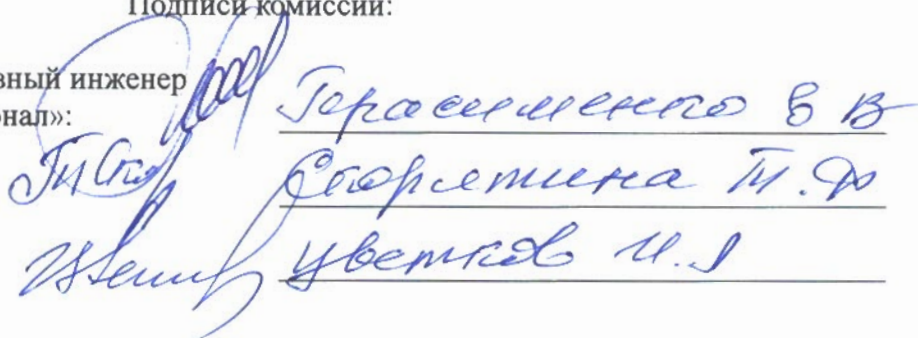 Подписи комиссии:
вный инженер
онал»:
Герасименко В В
Скорятина Т. Ф
Цветков И. Л